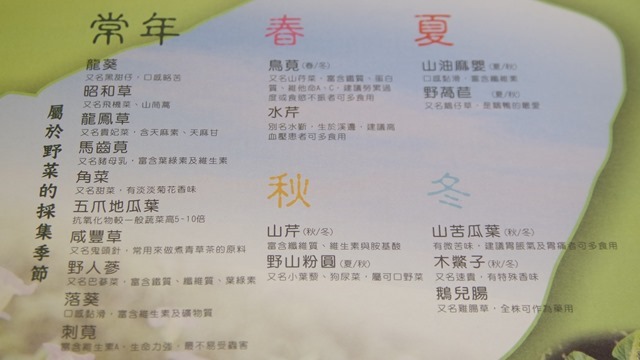 屬於野菜的採集季節
常年
龍葵
又名黑甜仔，口感略苦
昭和草
又名飛機菜、山茼蒿
龍鳳草
又名貴妃菜，含天麻素、天麻甘
馬齒莧
又名豬母乳，富含葉綠素及維生素
角菜
又名甜菜，有淡淡菊花香味
五爪地瓜葉
抗氧化物較一般蔬菜高5-10倍
咸豐草
又名鬼頭針，常用來做煮青草茶的原料
野人蔘
又名巴蔘菜，富含鐵質、纖維質、葉綠素
落葵
口感黏滑，富含維生素及礦物質
刺莧
富含維生素A，生命力強，最不易受蟲害
春
鳥莧(春/冬)
又名山芥菜，富含鐵質、蛋白
質、維他命A、C，建議勞累過
度或食欲不振者可多食用
水芹
別名水蘄，生於溪邊，建議高
血壓患者可多食用
夏
山油麻嬰(夏/秋)
口感黏滑，富含纖維素
野萵苣(夏/秋)
又名鵝仔草，是鵝鴨的最愛
秋
山芹(秋/冬)
富含纖維質、維生素與胺基酸
野山粉圓(夏/秋)
又名小葉藜、狗尿菜，屬可口野菜
冬
山苦瓜葉(秋/冬)
有微苦味，建議胃脹氣及胃痛者可多食用
木鱉子(秋/冬)
又名速貴，有特殊香味
鵝兒腸
又名雞腸草，全株可作為藥用